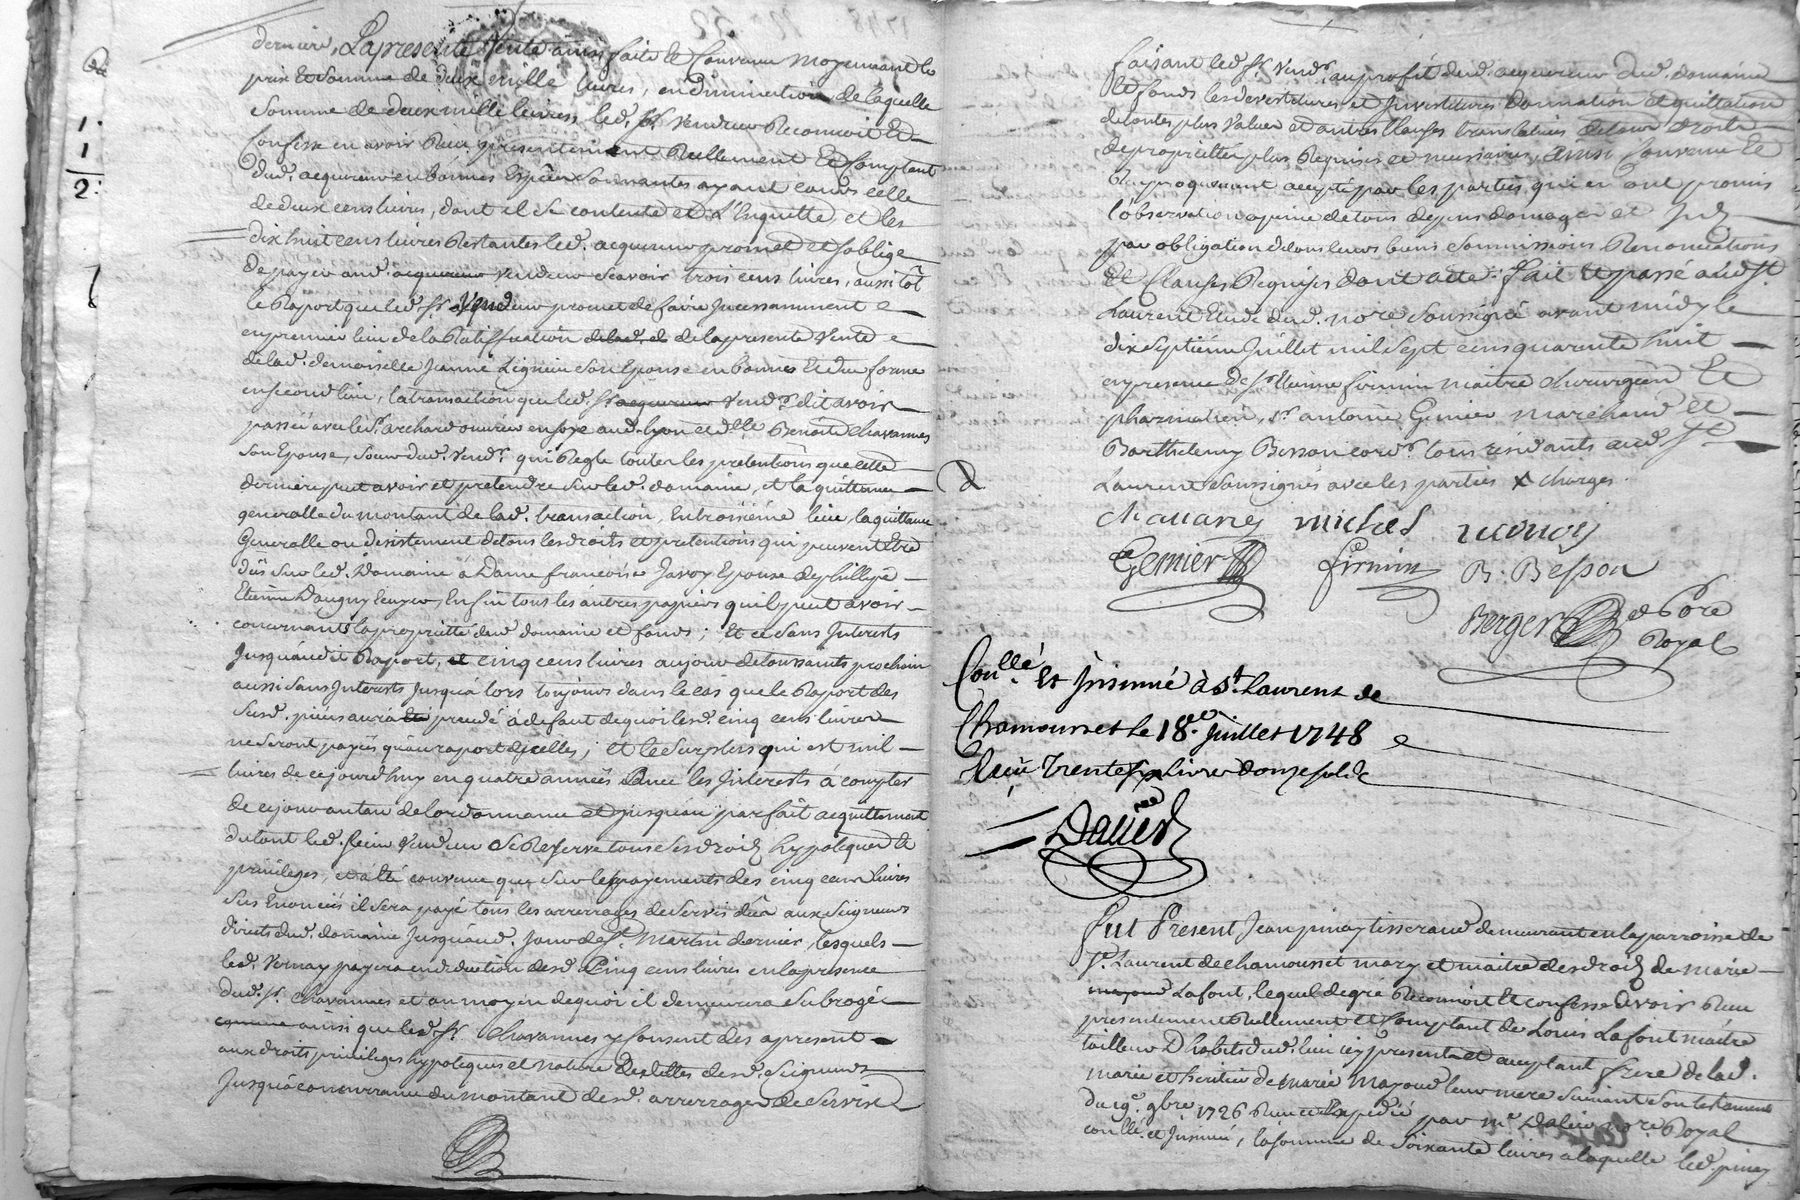 derniere, La presente Vente ainsi faite et Convenue moyennant le
prix et Somme de deux mille livres, en diminution de laquelle
Somme de deux mille livres, led. Sr. Vendeur Reconnoit et
Confesse en avoir Recu presentement Reellement et Comptant
dud. acquereur en bonnes Especes Sonnantes ayant cours celle
de deux cens livres, dont il Se contente et L'En quitte et les
dix huit cens livres Restantes led. acquereur promet et S'oblige
de payer aud. acquereur vendeur Scavoir trois cens livres, aussitôt
le Raport que led. Sr. Vendeur promet de faire Incessamment
en premier lieu de la Ratiffication de lad. de la presente Vente
de lad. demoiselle Jeanne Son Epouse en bonne et due forme
en second lieu, la transaction que led. Sr. acquereur Vendr. dit avoir
passée avec led. Sr. archard ouvrier en soye aud. Lyon et dlle. Benoite Chavannes
Son Epouse, Soeur dud. Vendr. qui Regle toutes les pretentions que cette
derniere peut avoir et pretendre Sur led. domaine, et la quittance
generalle du montant de lad. transaction, En troisiéme lieu, la quittance
Generalle ou desistement de tous les droits et pretentions qui peuvent Etre
dûs Sur led. Domaine à Dame francoise Javoy Epouse de phillipe
Etienne Daugny Ecuyer, Enfin tous les autres papiers qu'il peut avoir
concernants la propriette dud. domaine et fonds; Et ce Sans Interests
Jusqu'audit Raport, et cinq cens livres au jour de toussaints prochain
aussi Sans Interests Jusqu'à lors toujours dans le cas que le Raport des
Susd. pieces aura été precedé à defaut de quoi lesd. cinq cens livres
ne Seront payées qu'au raport d'Icelles; et le Surplus qui est mil
livres de ce jourd'huy en quatre années avec les Interests à compter
de ce jour au taux de l'ordonnance et jusqu'au parfait acquittement
du tout led. Sieur Vendeur Se Reserve tous Ses droits hypoteques et
privileges, et a Eté convenu que Sur le payement des cinq cens livres
Sus Enoncées il Sera payé tous les arrerages de Servis dûs aux Seigneurs
directs dud. domaine Jusqu'aud. Jour de St. Martin dernier, lesquels
led. Vernay payera en deduction desd. Cinq cens livres en la presence
dud. Sr. Chavannes et au moyen de quoi il demeurera Subrogé
comme aussi que led. Sr. Chavannes y Consent des a present
aux droits privileges hypoteques et Nature de dettes desd. Seigneurs
Jusqu'à concurrance du montant desd. arrerages de Servis
1.
1
2.
faisant led. Sr. Vendr. au profit dud. acquereur dud. domaine
et fonds les devestitures et Investitures donnation et quittation
de toutes plus Values et autres Clauses translatives de leurs droits
de propriettés plus Requises et necessaires, Ainsi Convenu et
Reciproquement accepté par les parties qui en ont promis
l'observation a peine de tous depens domages et
par obligation de tous leurs biens Soummissions Renonciations
et Clauses Requises dont acte: fait et passé aud. St.
Laurent Etude dud. nore. Soussigné avant midy le
dix Septieme Juillet mil Sept cens quarente huit
en presence de Sr. Etienne firmin maitre chirurgien et
pharmatien, Sr. antoine Gemier marchand et
Barthelemy Besson cordr. tous residants aud. St.
Laurent Soussignés avec les parties X charges.
chauanes michel
Gemier firmin B. Besson
Berger
Nore
Royal
Conllé. Et Insinué à St. Laurent de
Chamousset le 18e. Juillet 1748
Recu Trente six livres douze sols
Dalier
Fut Present Jean pinay tisserand demeurant en la parroisse de
St. Laurent de chamousset mary et maitre des droits de marie
mayoud Lafont, lequel de gré Reconnoit et confesse Avoir Recu
presentement Reellement et Comptant de Louis Lafont maitre
tailleur D'habits dud. lieu icy present et acceptant frere de lad.
marie et heritier de marie Mayoud leur mere Suivant Son testament
du 19e. 9bre. 1726 Recu et Expedié par me. Dalier nore. Royal
conllé. et Insinué, la Somme de Soixante livres a laquelle led. pinay